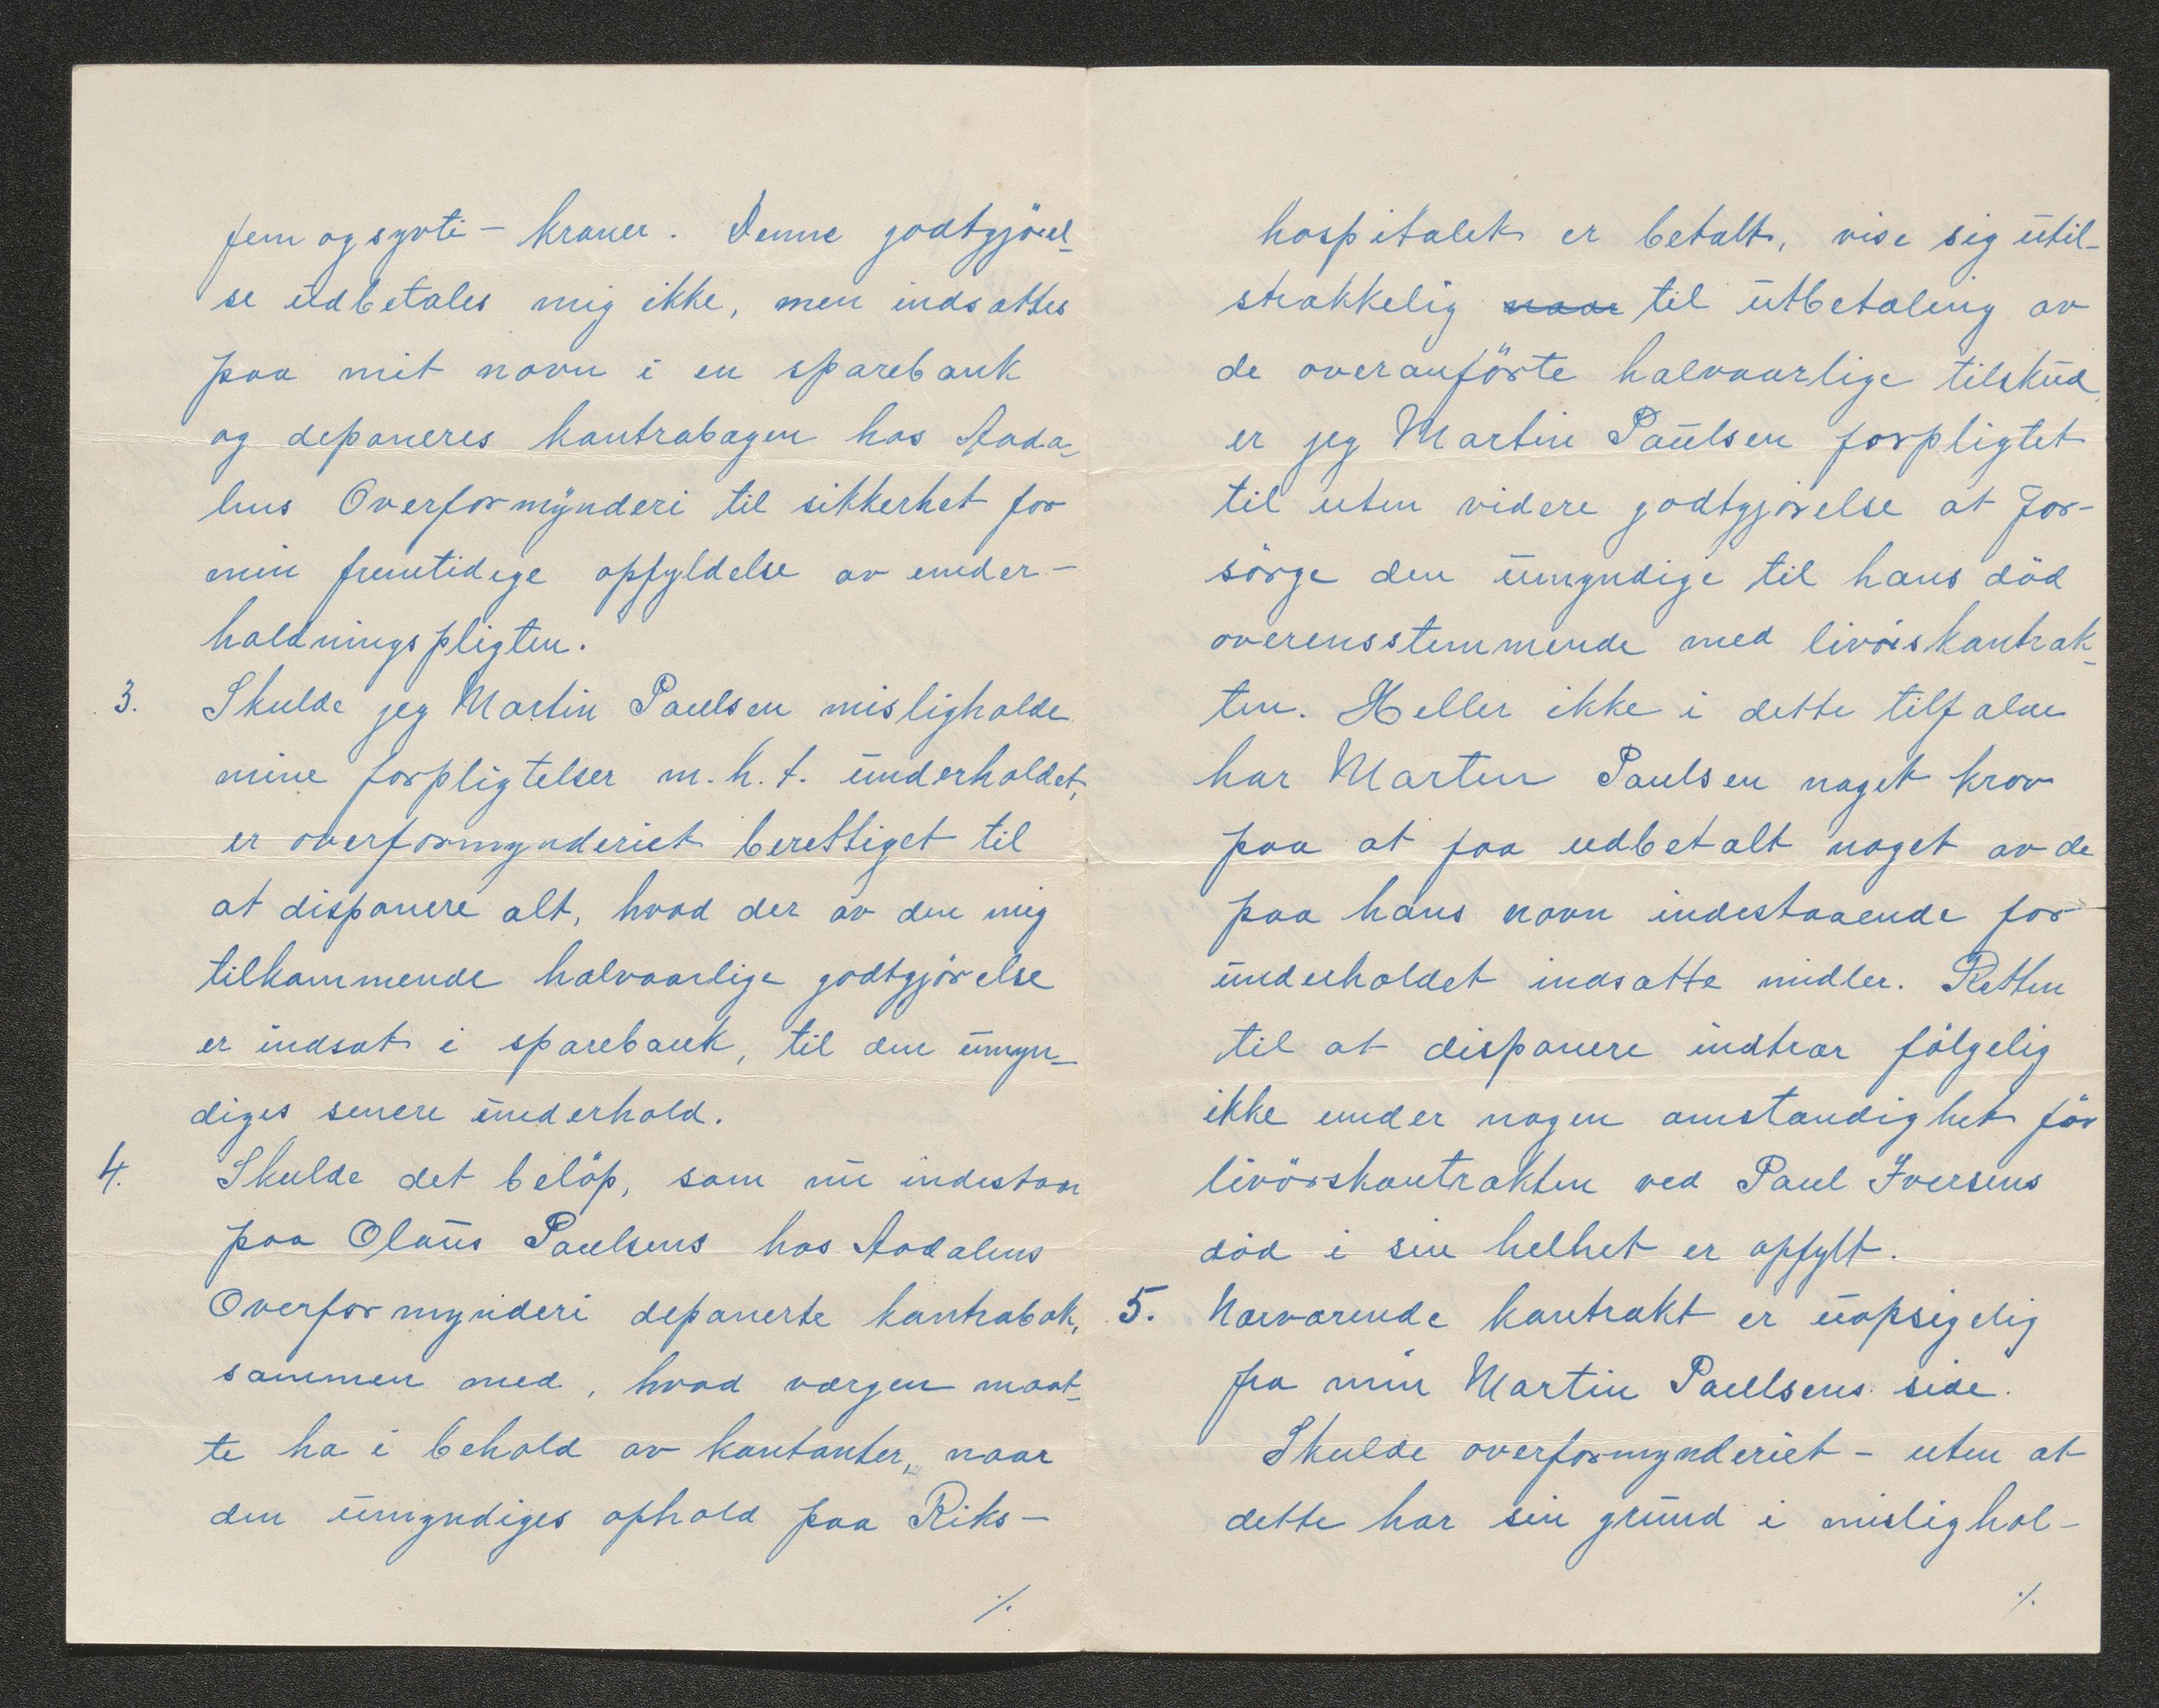 fem og syvti - kroner. Denne godtgjörel-
se udbetales mig ikke, men indsættes
paa mit navn i en sparebank
og deponeres kontrabogen hos Aada-
lens Overformynderi til sikkerhet for
min fremtidige opfyldelse av under-
holdningspligten.
3. Skulde jeg Martin Paulsen misligholde
mine forpligtelser m.h.t. underholdet,
er overformynderiet berettiget til
at disponere alt, hvad der av den mig
tilkommende halvaarlige godtgjörelse
er indsat i sparebank, til den umyn-
diges senere underhold.
4. Skulde det belöp, som nu indestaar
paa Olaus Paulsens hos Aadalens
Overformynderi deponerte kontrabok,
sammen med, hvadværgen maat-
te ha i behold av kontanter, naar
den umyndiges ophold paa Riks-
./.
hospitalet er betalt, vise sig util-
strækkelig naar til utbetaling av
de overanförte halvaarlige tilskud,
er jeg Martin Paulsen forpligtet
til uten videre godtgjörelse at for-
sörge den umyndige til hans död
overensstemmende med livörskontrak-
ten. Heller ikke i dette tilfælde
har Martin Paulsen noget krav
paa at faa udbetalt noget av de
paa hans navn indestaaende for
underholdet indsatte midler. Retten
til at disponere indtrær fölgelig
ikke under nogen omstændighet för
livörskontrakten ved Paul Iversens
död i sin helhet er opfylt.
5. Nærværende kontrakt er uopsigelig
fra min Martin Paulsens side.
Skulde overformynderiet - uten at
dette har sin grund i mislighol-
./.